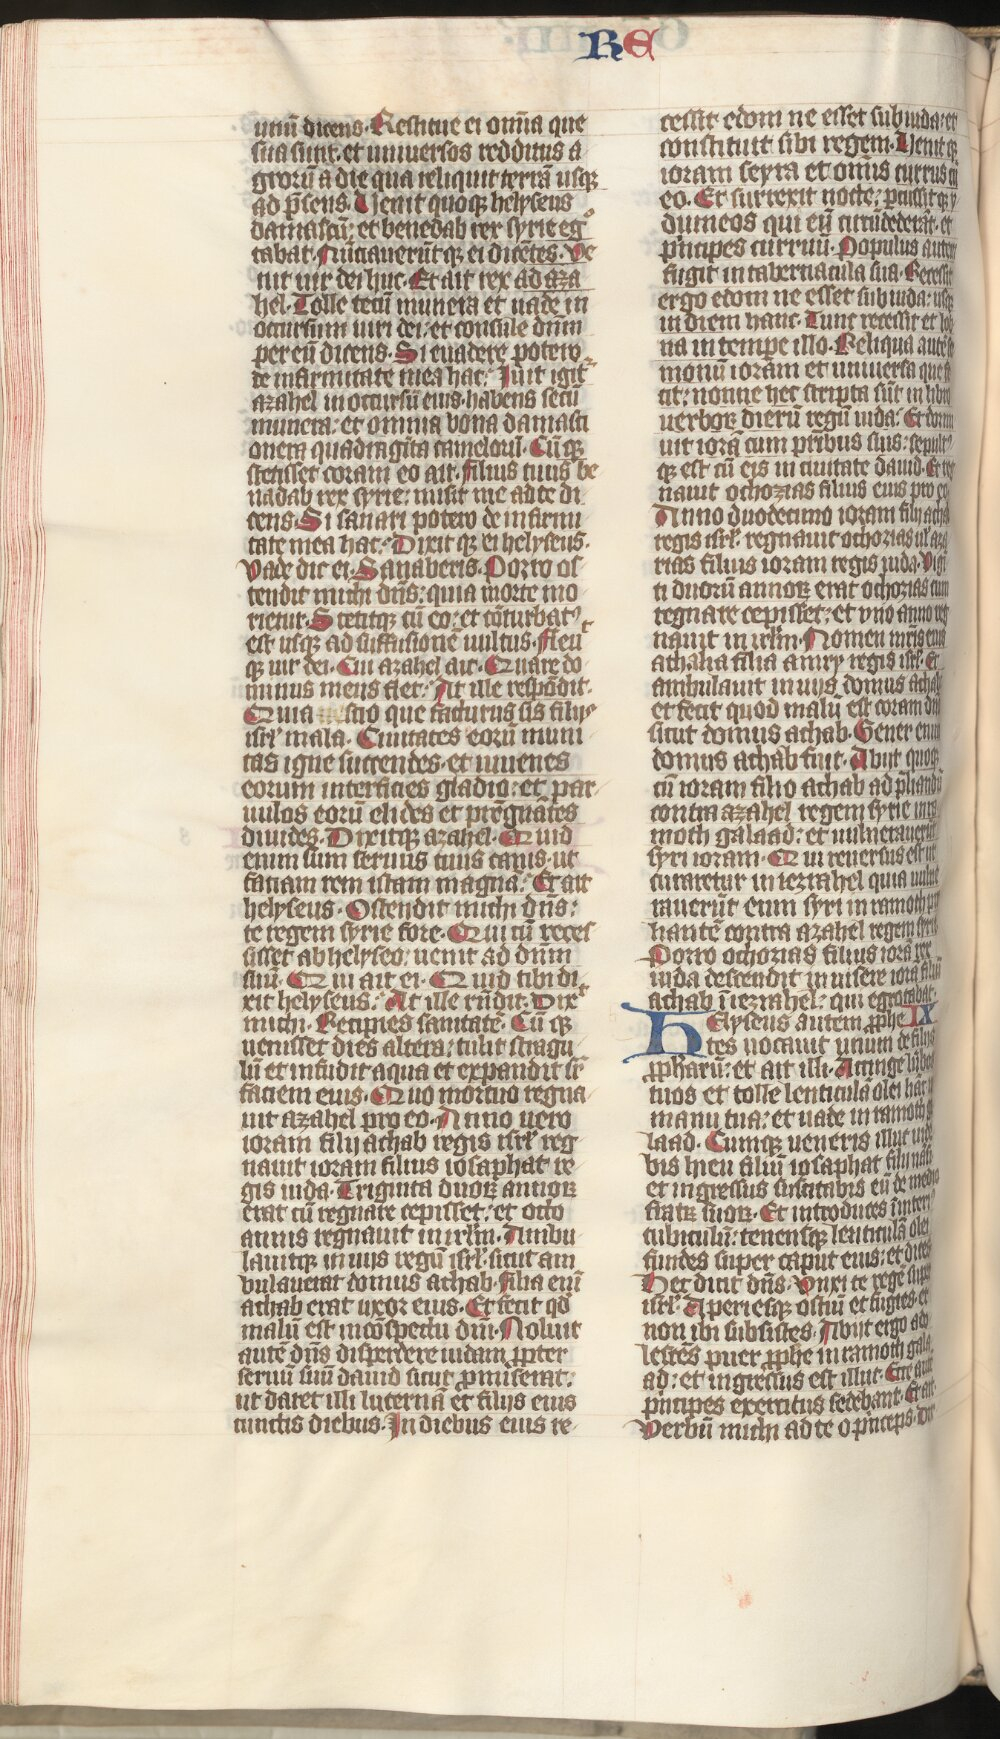 RE
unū dicens. Restitue ei omīa que
sua sunt. et universos redditus a
grorū a die qua reliquit terrā usq;
ad p̄sens. Uenit quoq; helyseus
damascū: et benedab rex syrie eg
tabat. Nūtiaverūt q; ei dicētes. Ve
nit vir dei huc. Et ait rex ad aza
hel. Tolle tecū munera et uade in
occursum uiri dei: et consule dn̄m
per eū dicens. Si euadere potero
de infirmitate mea hac. Iuit igit᷑
azahel in occursū eius. habens secū
munera: et omnia bona damasci
onera quadragīta camelorū. Cū q;
stetisset coram eo ait. filius tuus be
nadab rex syrie: misit me ad te di
cens. Si sanari potero de infirmi
tate mea hac. Dixit q; ei helyseus.
Vade dic ei. Sanaberis. Porro os
tendit michi dn̄s: quia morte mo
rietur. Stetitq; cū eo: et cōturbat᷒
est usq; ad suffusionē uultus. fleu
q; uir dei. Cui azahel ait. Quare do
minus meus flet. At ille respōdit.
Quia scio que facturus sis filijs
isrl̄ mala. Ciuitates eorū muni
tas igne succendes. et iuuenes
eorum interficies gladio: et par
uulos eorū elides et pregnātes
diuides. Dixitq; azahel. Quid
enim sum seruus tuus canis. ut
faciam rem istam magnā. Et ait
helyseus. Ostendit michi dn̄s:
te regem syrie fore. Qui cū reces
sisset ab helyseo: uenit ad dn̄m
suū. Qui ait ei. Quid tibi di
xit helyseus. At ille rn̄dit. Dix
michi. Recipies sanitatē. Cū q;
uenisset dies altera: tulit stragu
lū et infudit aqua et expandit sr̄
faciem eius. Quo mortuo regna
uit azahel pro eo. Anno uero
ioram filij achab regis isrl̄ reg
nauit ioram filius iosaphat re
gis iuda. Triginta duoꝝ annoꝝ
erat cū regnare cepisset: et octo
annis regnauit in irlm̄. Ambu
lauitq; in uijs regū isrl̄. sicut am
bulauerat domus achab. filia eni
achab erat uxor eius. Et fecit qd̄
malū est in cōspectu dn̄i. Noluit
autē dn̄s disperdere iudam ꝓpter
seruū suū dauid sicut ꝓmiserat:
ut daret illi lucernā et filijs eius
cunctis diebus. In diebus eius re-
cessit edom ne esset sub iuda: et
constituit sibi regem. Uenit q;
ioram seyra et om̄is currus cū
eo. Et surrexit nocte: ꝑcussit q; y
dumeos qui eū circūdederāt. et
p̄ncipes curruū. Populus autem
fugit in tabernacula sua. Recessit
ergo edom ne esset sub iuda: usq;
in diem hanc. Tunc recessit et lob
na in tempe illo. Reliqua autē s̄
monū ioram et uniuersa que fe
cit: nonne hec scripta sūt in libro
uerboꝝ dierū regū iuda. Et dormi
uit iorā cum pr̄ibus suis: sepult᷒
q; est cū eis in ciuitate dauid. Et reg
nauit ochozias filius eius pro eo.
Anno duodecimo ioram filij achab
regis isrl̄. regnauit ochozias ul̄ aza
rias filius ioram regis iuda. Vigi
ti duorū annoꝝ erat ochozias cum
regnare cepisset: et vno anno reg
nauit in irlm̄. Nomen mr̄is eius
athalia filia amry regis isrl̄. Et
ambulauit in uijs domus achab
et fecit quod malū est coram dn̄o
sicut domus achab. Gener enim
domus achab fuit. Abijt quoq;
cū ioram filio achab ad p̄liandū
contra azahel regem syrie in ra
moth galaad: et uulnerauerūt
syri ioram. Qui reuersus est ut
curaretur in iezrahel quia uulne
rauerūt eum syri in ramoth p̄
liantē contra azahel regem syrie
Porro ochozias filius iorā rex
iuda descendit inuisere iorā filiū
achab ī iezrahel: qui egrotabat.
Helyseus autem ꝓphe IX
tes uocauit unum de filijs
ꝓpharū: et ait illi. Accinge lūbos
tuos et tolle lenticulā olei hāc ī
manu tua: et uade in ramoth ga
laad. Cumq; ueneris illuc uide
bis hieu filiū iosaphat filij nāsi
et ingressus suscitabis eū de medio
fratꝝ suoꝝ. Et introduces ī interi᷒
cubiculū: tenensq; lenticulā olei
fundes super caput eius: et dices
Hec dicit dn̄s. Vnxi te regē super
isrl̄. Aperiesq; ostiū et fugies. et
non ibi subsistes. Abijt ergo ado
lescēs puer ꝓphe in ramoth gala
ad: et ingressus est illuc. Ecce autē
principes exercitus sedebant. Et ait.
Verbū michi ad te o p̄nceps. Dix